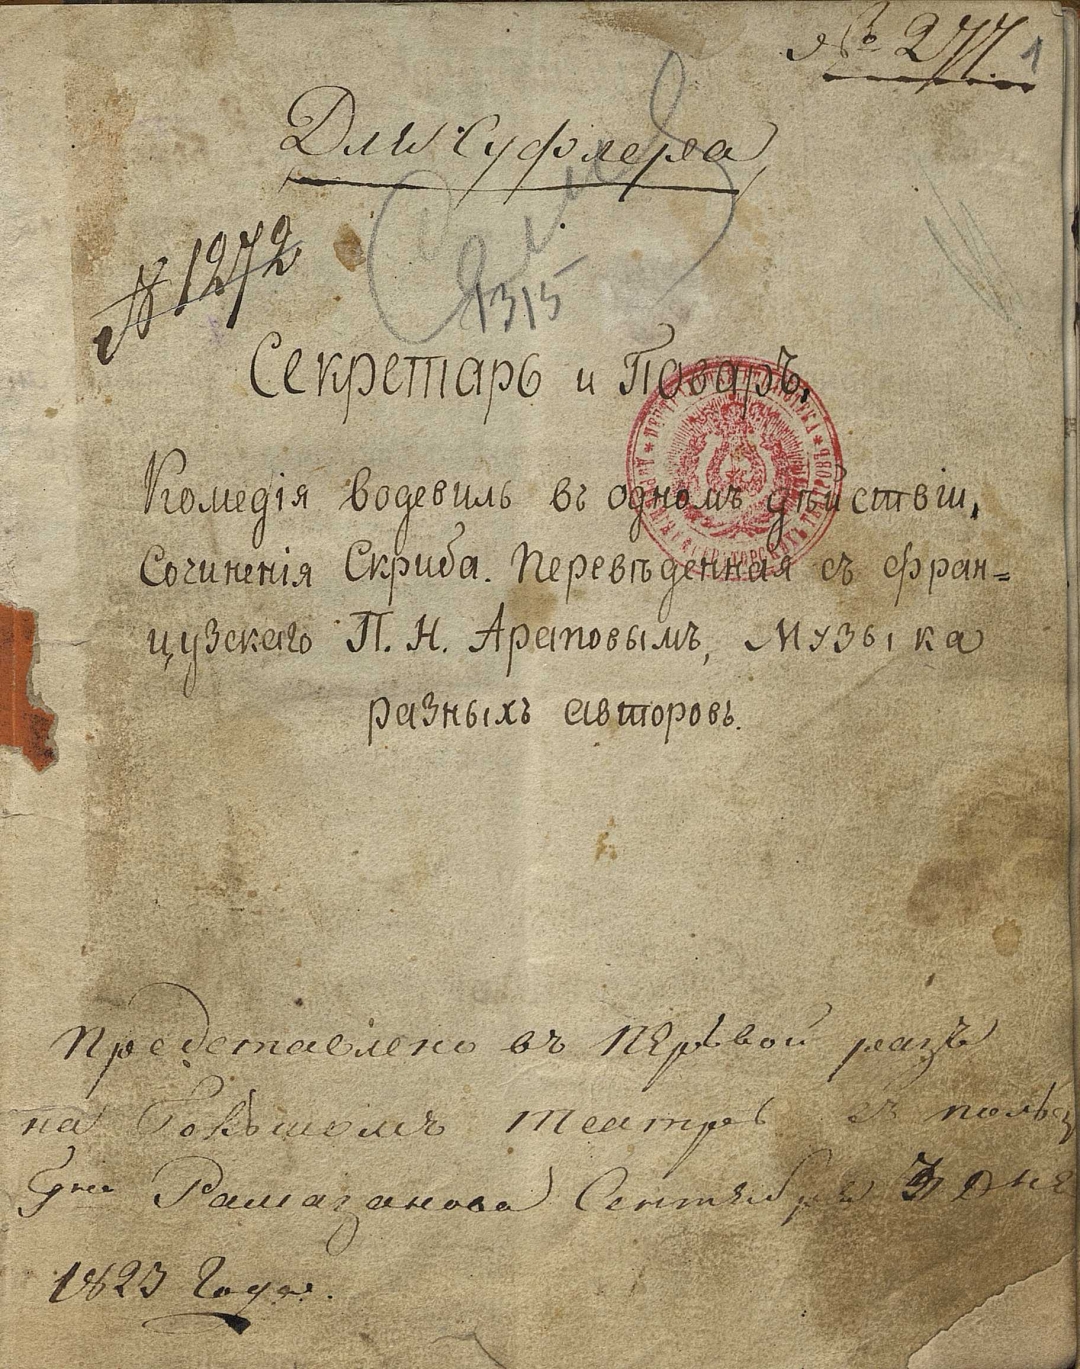 № 277. 1
Для Суфлера
№ 1272
1315
Секретарь и Поваръ.
Комедія водевиль въ одномъ дѣйствіи,
Сочиненія Скриба. Перевѣденная съ фран=
цузскаго П. Н. Араповымъ, Музыка
разныхъ авторовъ.
Представлено въ первой разъ
на театре въ пользу
Рамазанова Сентебря дне
1823 Года.